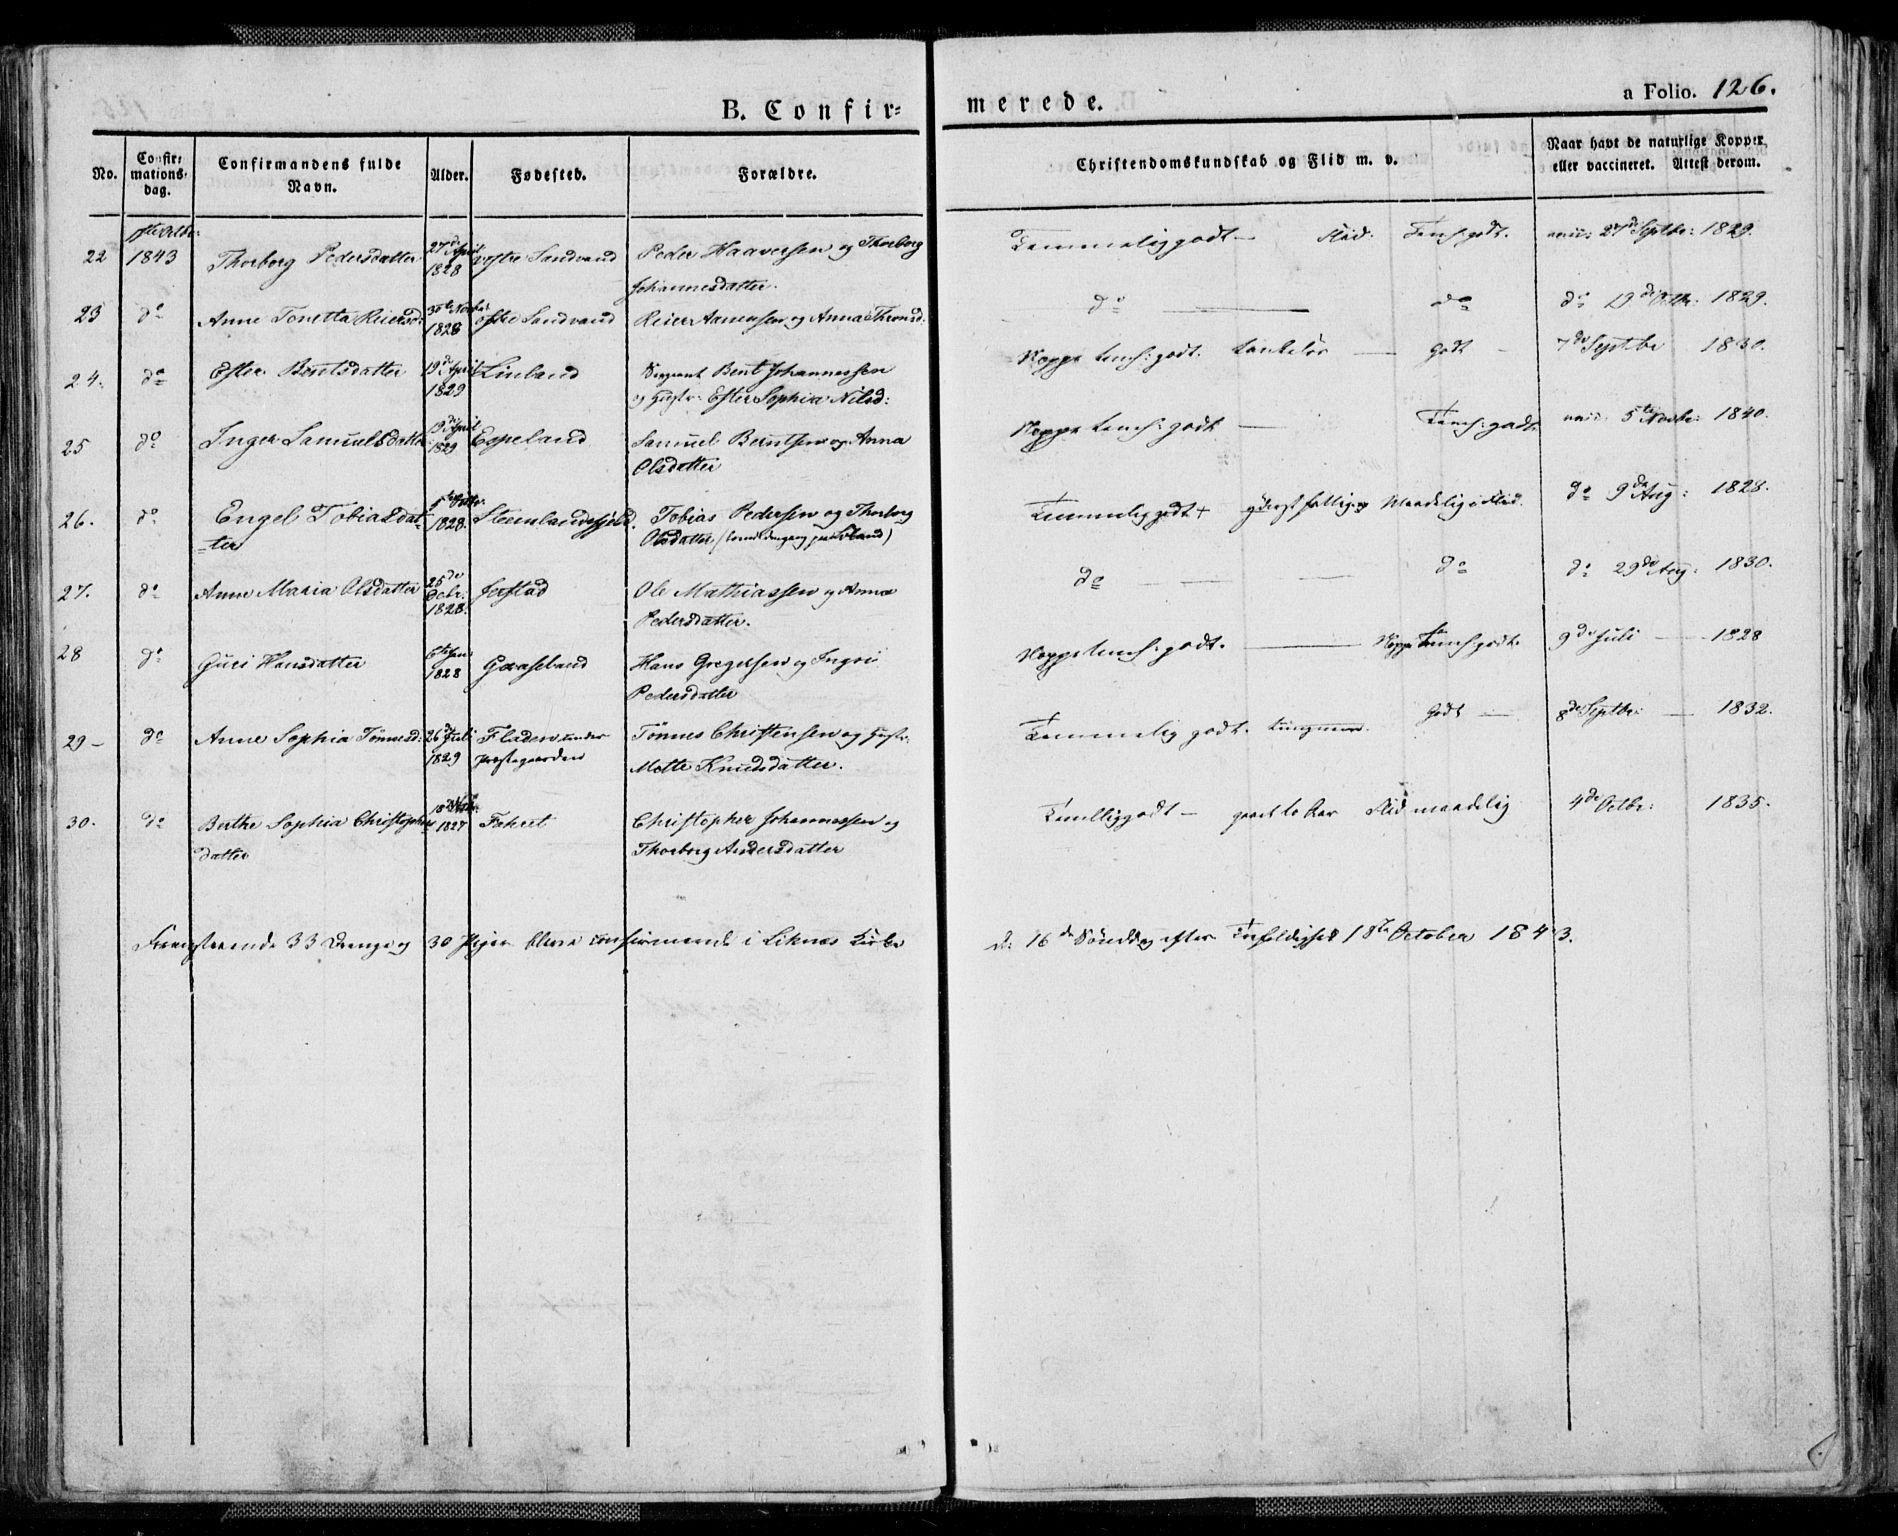 B. Confir=
merede.
a Folio. 126.
No.
Confir=
mations=
dag.
Confirmandens fulde
Navn.
Alder.
Fødested.
Forældre.
Christendomskundskab og Flid m. v.
Naar havt de naturlige Kopper,
eller vaccineret. Attest derom.
22 1843 Thorborg Pedersdatter 27de April 1828 Østre Sandvand Peder Haaversen og Thorborg
Johannesdatter. Temmelig godt — Flid. Temel: godt. vacc: 27de Septbr: 1829.
23 do Anne Tonetta Reiersd: 1828 Østre Sandvand Reier Aanensen og Anna Thronsd.
do — do do 19de Octbr: 1829.
24. do Ester Bentsdatter 19de April 1829 Linland Bent Johannessen
og Hustr: Ester Sophia Nilsd: Neppe temel: godt. tankeløs — godt — 7de Septbr 1830.
25 do Inger Samuelsdatter 19de April 1829 Espeland Samuel Berntsen og Anna
Olsdatter Neppe temel: godt — Temel: godt vacc: 5te Novbr: 1840.
26. do Engel Tobiasdat=
=ter 1828. Steenlandsfjeld. Tobias Pedersen og Thorborg
Olsdatter Temmelig godt + yderst fattig og Maadelig Flid. do 9de Aug: 1828.
27. do Anne Maria Olsdatter 25de Febr. 1828. Jerstad Ole Mathiassen og Anna
Pedersdatter. do — — — do do 29de Aug: 1830.
28 do Guri Hansdatter 6te Jan: 1828 Gaaseland Hans Gregersen og Ingri
Pedersdatter Neppe temel: godt. — Neppe temel: godt. 9de Juli — 1828
29 — do Anne Sophia Tønnesd: 26de Juli 1829 Fladen under
Præstegaarden Tønnes Christensen og Hustr:
Mette Knudsdatter. Temmelig godt. tungnem. Godt — 8de Septbr: — 1832.
30. do Berthe Sophia Christophers
datter 1827 Christopher Johannessen og
Thorborg Andersdatter Temellig godt — Flid maadelig 4de Octbr: 1835.
Foranstaaende 33 Drenge og 30 Piger bleve confirmerede i Liknæs Kirke
d: 16de Søndag efter Trefoldighed 1ste October 1843.